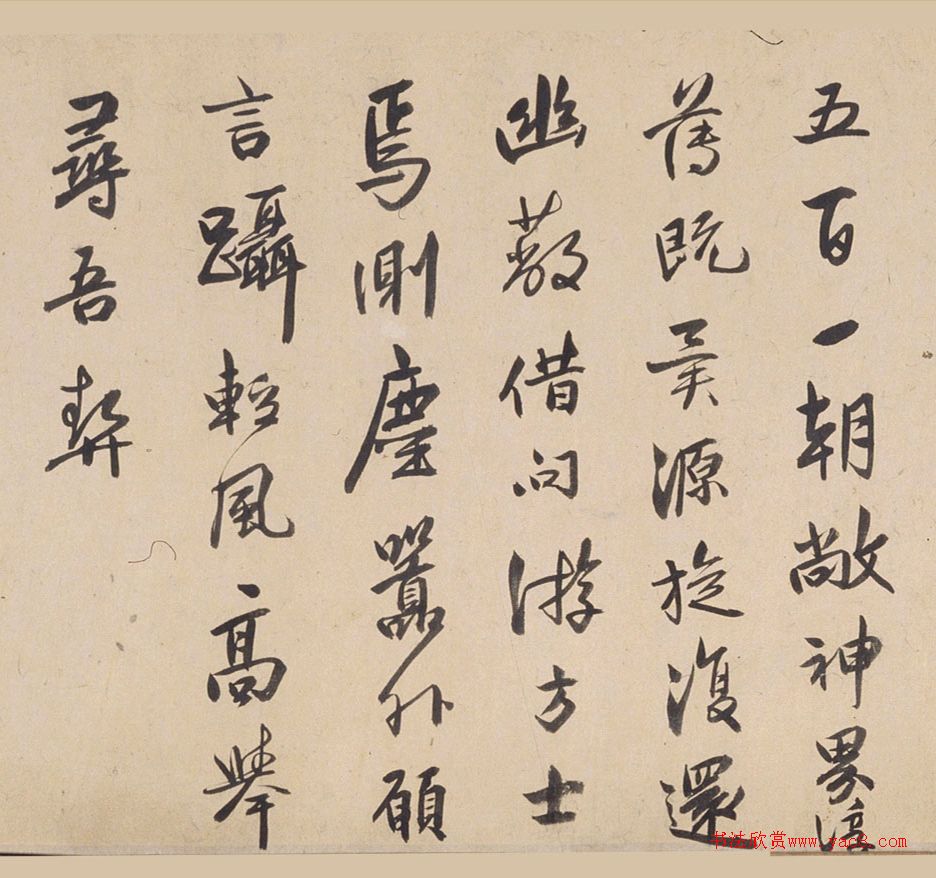 五百一朝敞神界淳
薄既异源旋復還
幽蔽借問游方士
焉測塵囂外願
言躡輕風高舉
尋吾契
书法欣赏www.yac8.com